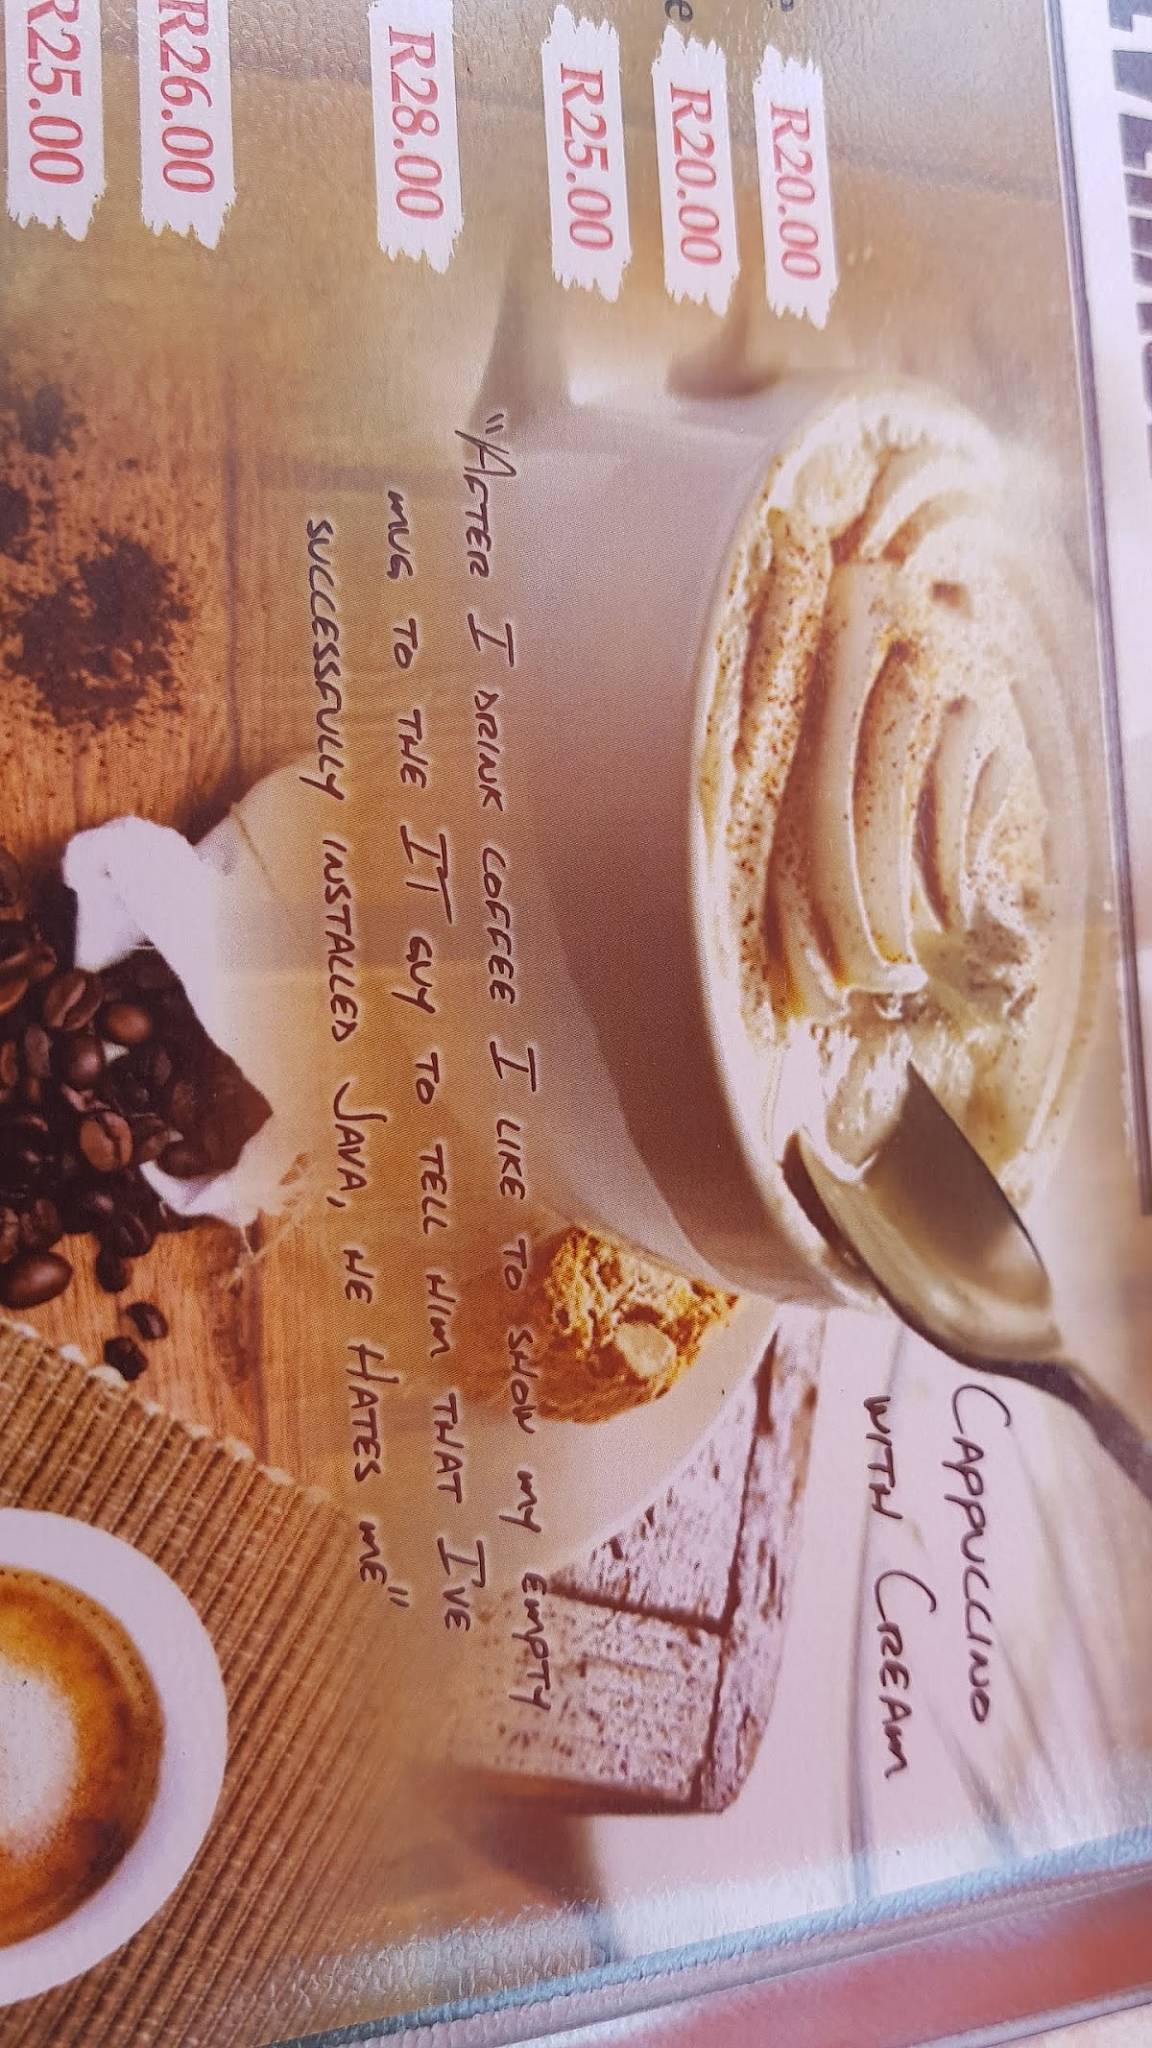 R20.00
R20.00
R25.00
R28.00
R26.00
R25.00
CAPPUCCINO
WITH CREAM
"AFTER I DRINK COFFEE I LIKE TO SHOW MY EMPTY
MUG TO THE IT GUY TO TELL HIM THAT I'VE
SUCCESSFULLY INSTALLED JAVA, HE HATES ME"